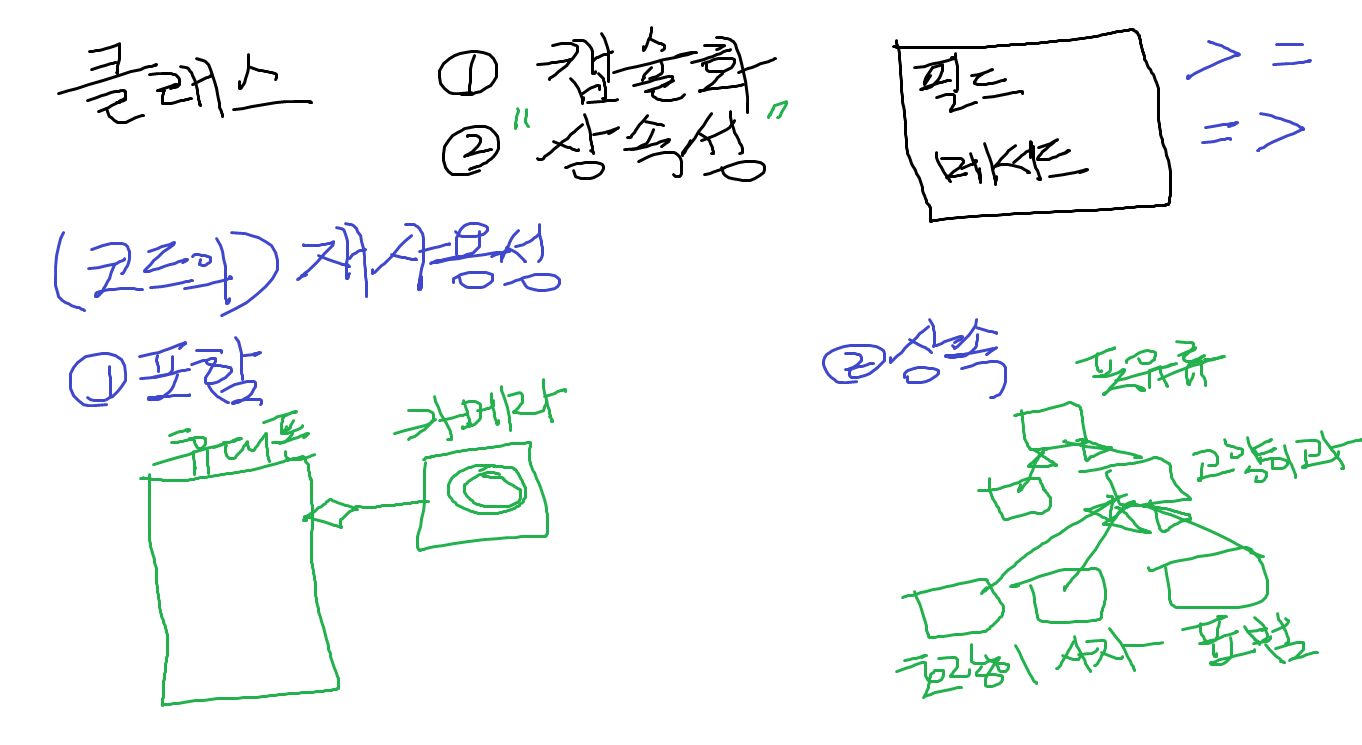 클래스 ① 캡슐화
② "상속성"
필드
메서드
> =
= >
(코드의) 재사용성
① 포함
휴대폰
카메라
② 상속
포유류
고양이과
호랑이 사자 표범